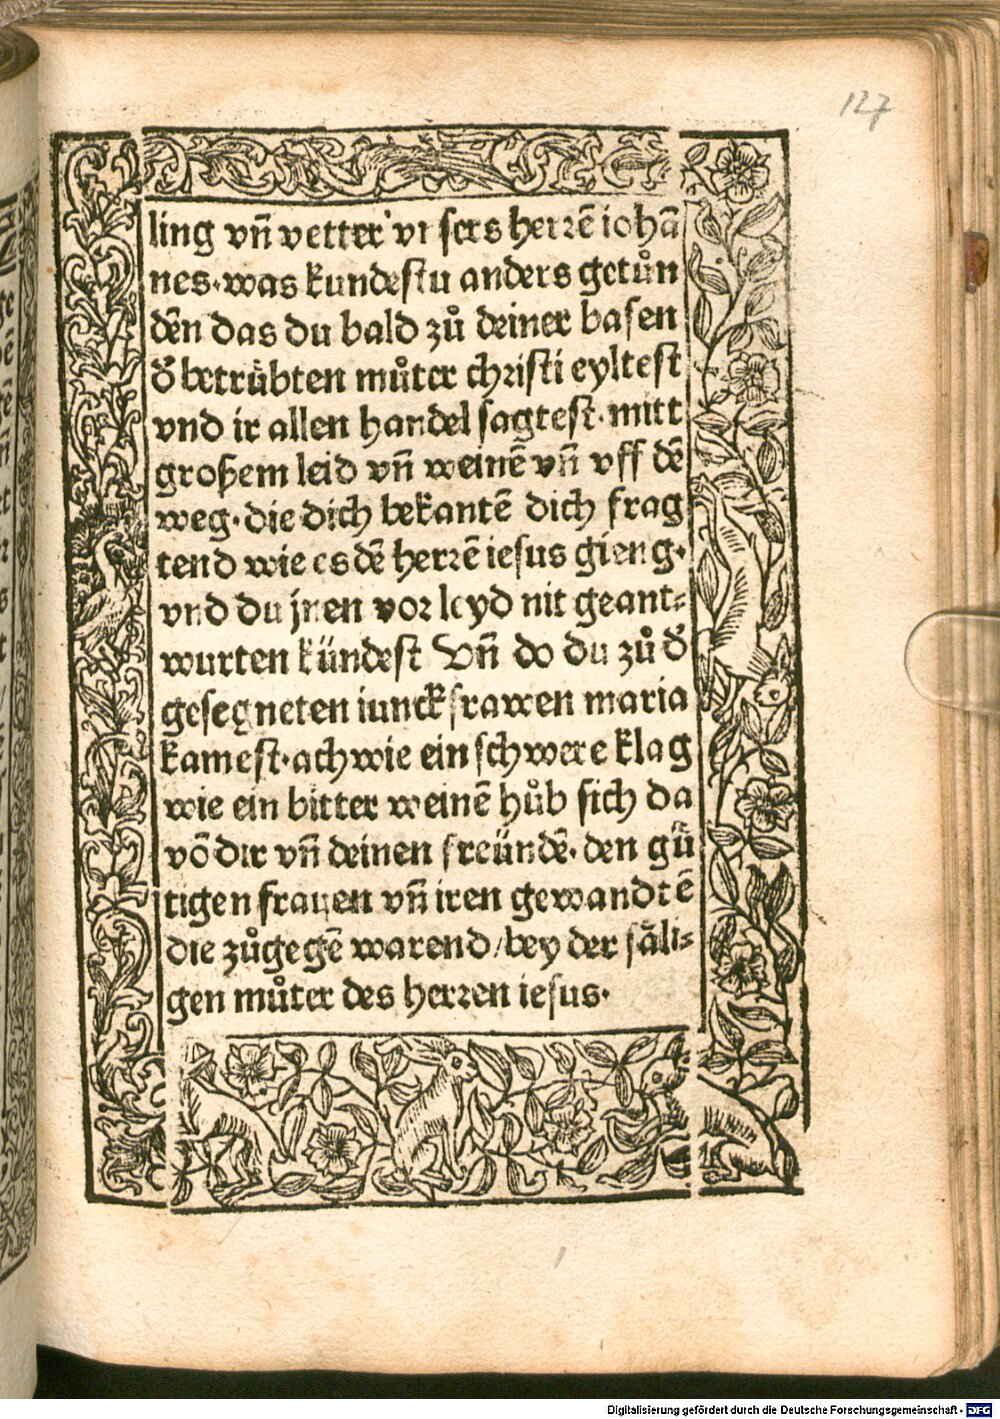 127
ling vn̄ vetter vnsers herrē iohā
nes·was kundestu anders getůn
dēn das du bald zů deiner basen
d̄ betrůbten můter christi eyltest
vnd ir allen handel sagtest·mitt
großem leid vn̄ weinē vn̄ vff dē
weg·die dich bekantē dich frag
tend wie es dē herrē iesus gieng·
vnd du jnen vor leyd nit geant⸗
wurten kündest Vn̄ do du zů d̄
gesegneten iunckfrawen maria
kamest·ach wie ein schwere klag
wie ein bitter weinē hůb sich da
vō dir vn̄ deinen freündē·den gů
tigen frauen vn̄ iren gewandtē
die zůgegē warend/bey der säli⸗
gen můter des herren iesus·
Digitalisierung gefördert durch die Deutsche Forschungsgemeinschaft - DFG